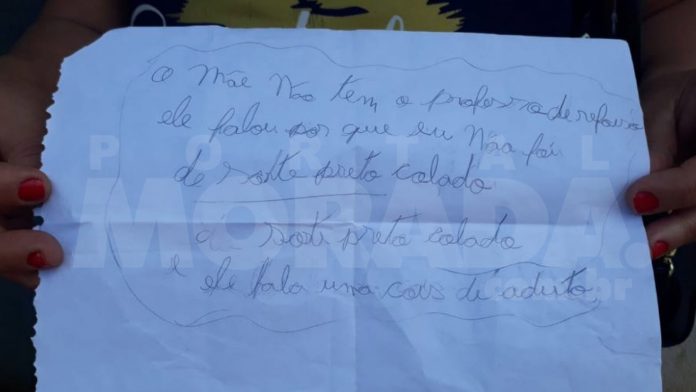 O Mãe Não tem o professor de reforso
ele falou por que eu Não foi
de sorte preto colado
di sorti preto colado
e ele fala uma cois di aduto
PORTAL
MORADA.
com.br